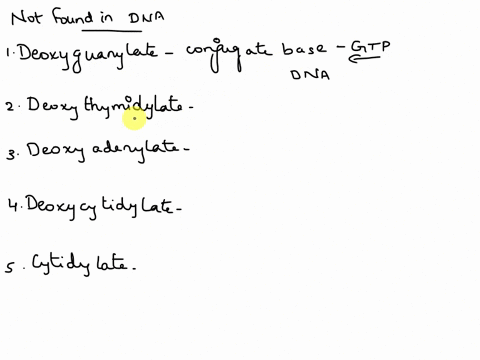 Not Found in DNA
1. Deoxyguanylate - conjugate base - GTP
DNA
2. Deoxy thymidylate -
3. Deoxy adenylate -
4. Deoxycytidylate -
5. Cytidylate -